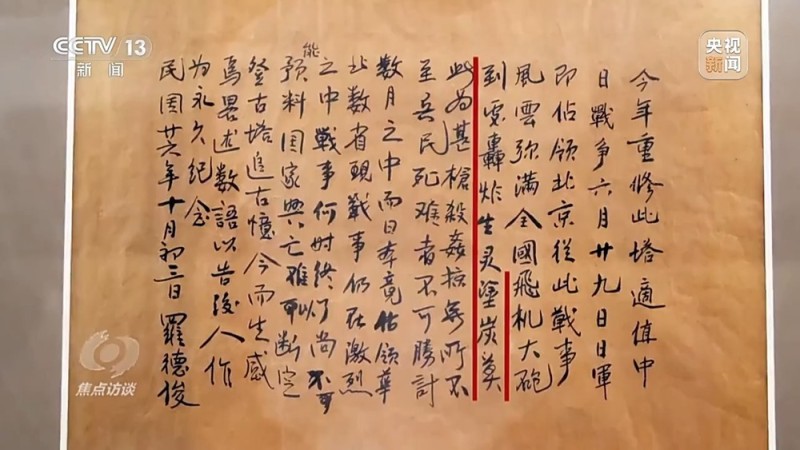 CCTV 13
新闻
央视
新闻
今年重修此塔適值中
日戰争六月廿九日日軍
即佔領北京從此戰事
風雲弥满全國飛机大砲
到處轟炸生灵塗炭莫
此为甚槍殺姦掠無所不
至兵民死难者不可勝計
数月之中而日本竟佔領華
北数省現戰事仍在激烈
之中戰事何时终了尚不
能预料国家興亡难以断定
登古塔追古憶今而生感
焉畧述数語以告後人作
为永久纪念
民国廿六年十月初三日 羅德俊
焦点访谈